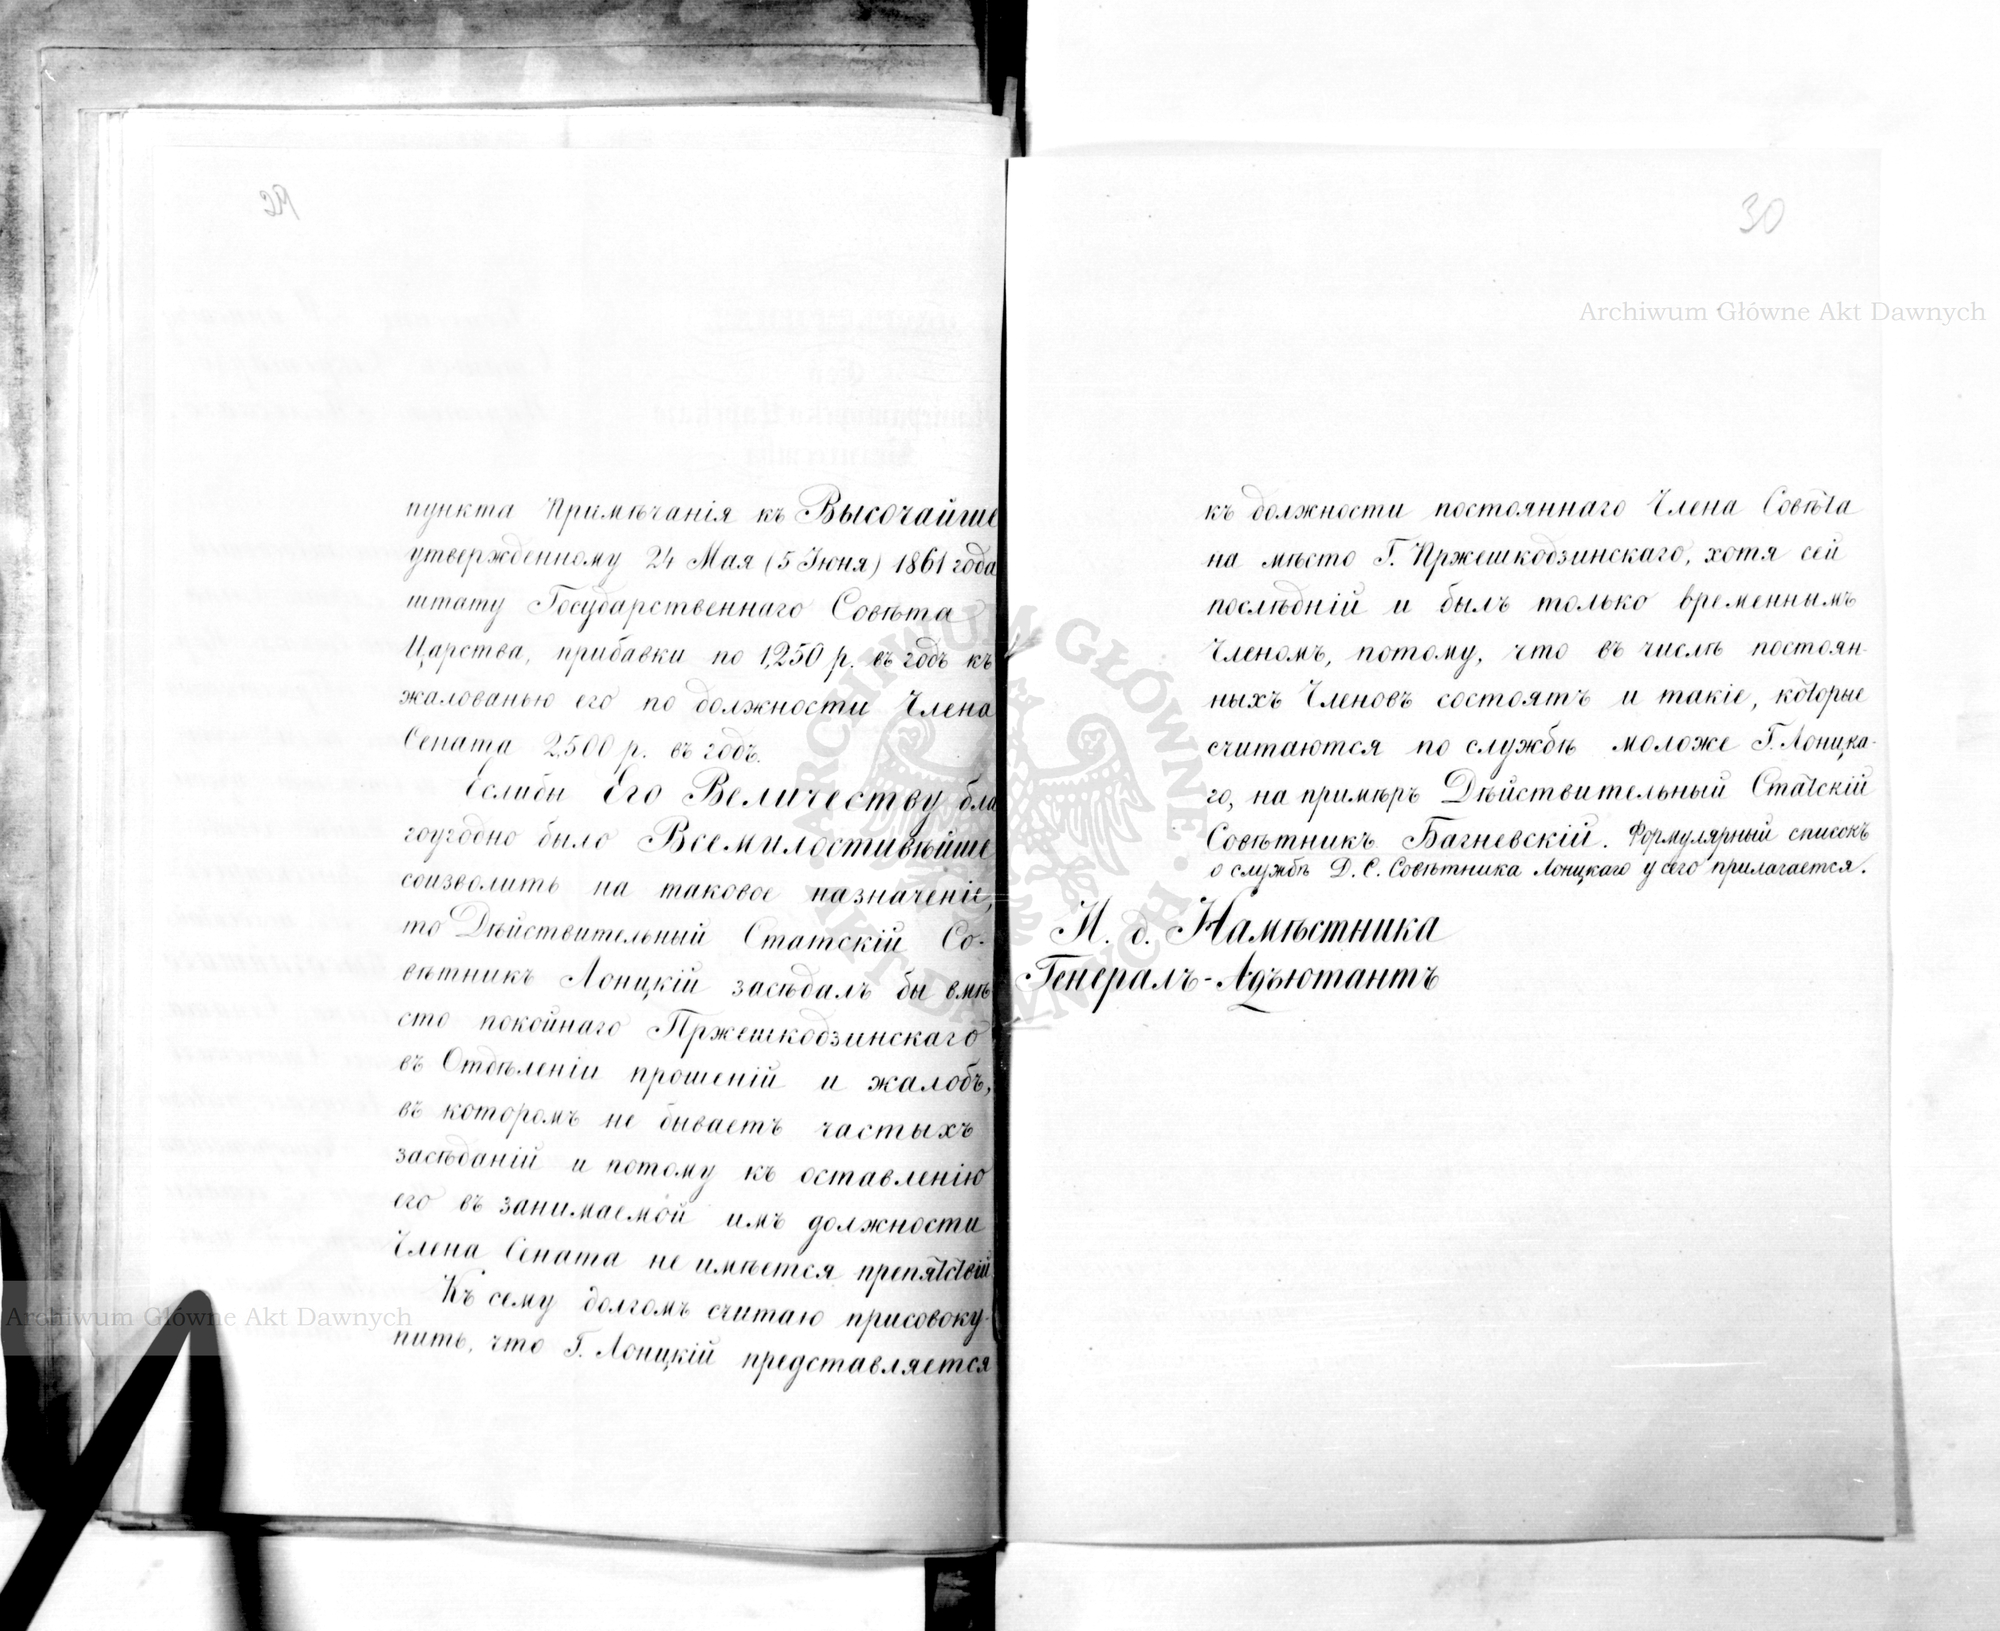 пункта Примѣчанія къ Высочайше
утвержденному 24 Мая (5 Іюня) 1861 года
штату Государственнаго Совѣта
Царства, прибавки по 1,250 р. въ годъ къ
жалованью его по должности Члена
Сената 2500 р. въ годъ.
Еслибы Его Величеству бла
гоугодно было Всемилостивѣйше
соизволить на таковое назначеніе,
то Дѣйствительный Статскій Со-
вѣтникъ Лонцкій засѣдалъ бы вмѣ
сто покойнаго Пржешкодзинскаго
въ Отдѣленіи прошеній и жалобъ,
въ которомъ не бываетъ частыхъ
засѣданій и потому къ оставленію
его въ занимаемой имъ должности
Члена Сената не имѣется препятствій
Къ сему долгомъ считаю присовоку-
пить, что Г. Лонцкій представляется
30
къ должности постояннаго Члена Совѣта
на мѣсто Г. Пржешкодзинскаго, хотя сей
послѣдній и былъ только временнымъ
Членомъ, потому, что въ числѣ постоян-
ныхъ Членовъ состоятъ и такіе, которые
считаются по службѣ моложе Г. Лонцка-
го, на примѣръ Дѣйствительный Статскій
Совѣтникъ Багневскій. Формулярный списокъ
о службѣ Д. С. Совѣтника Лонцкаго у сего прилагается.
И. д. Намѣстника
Генералъ-Адъютантъ
Archiwum Główne Akt Dawnych
Archiwum Główne Akt Dawnych
ARCHIWUM GŁÓWNE AKT DAWNYCH